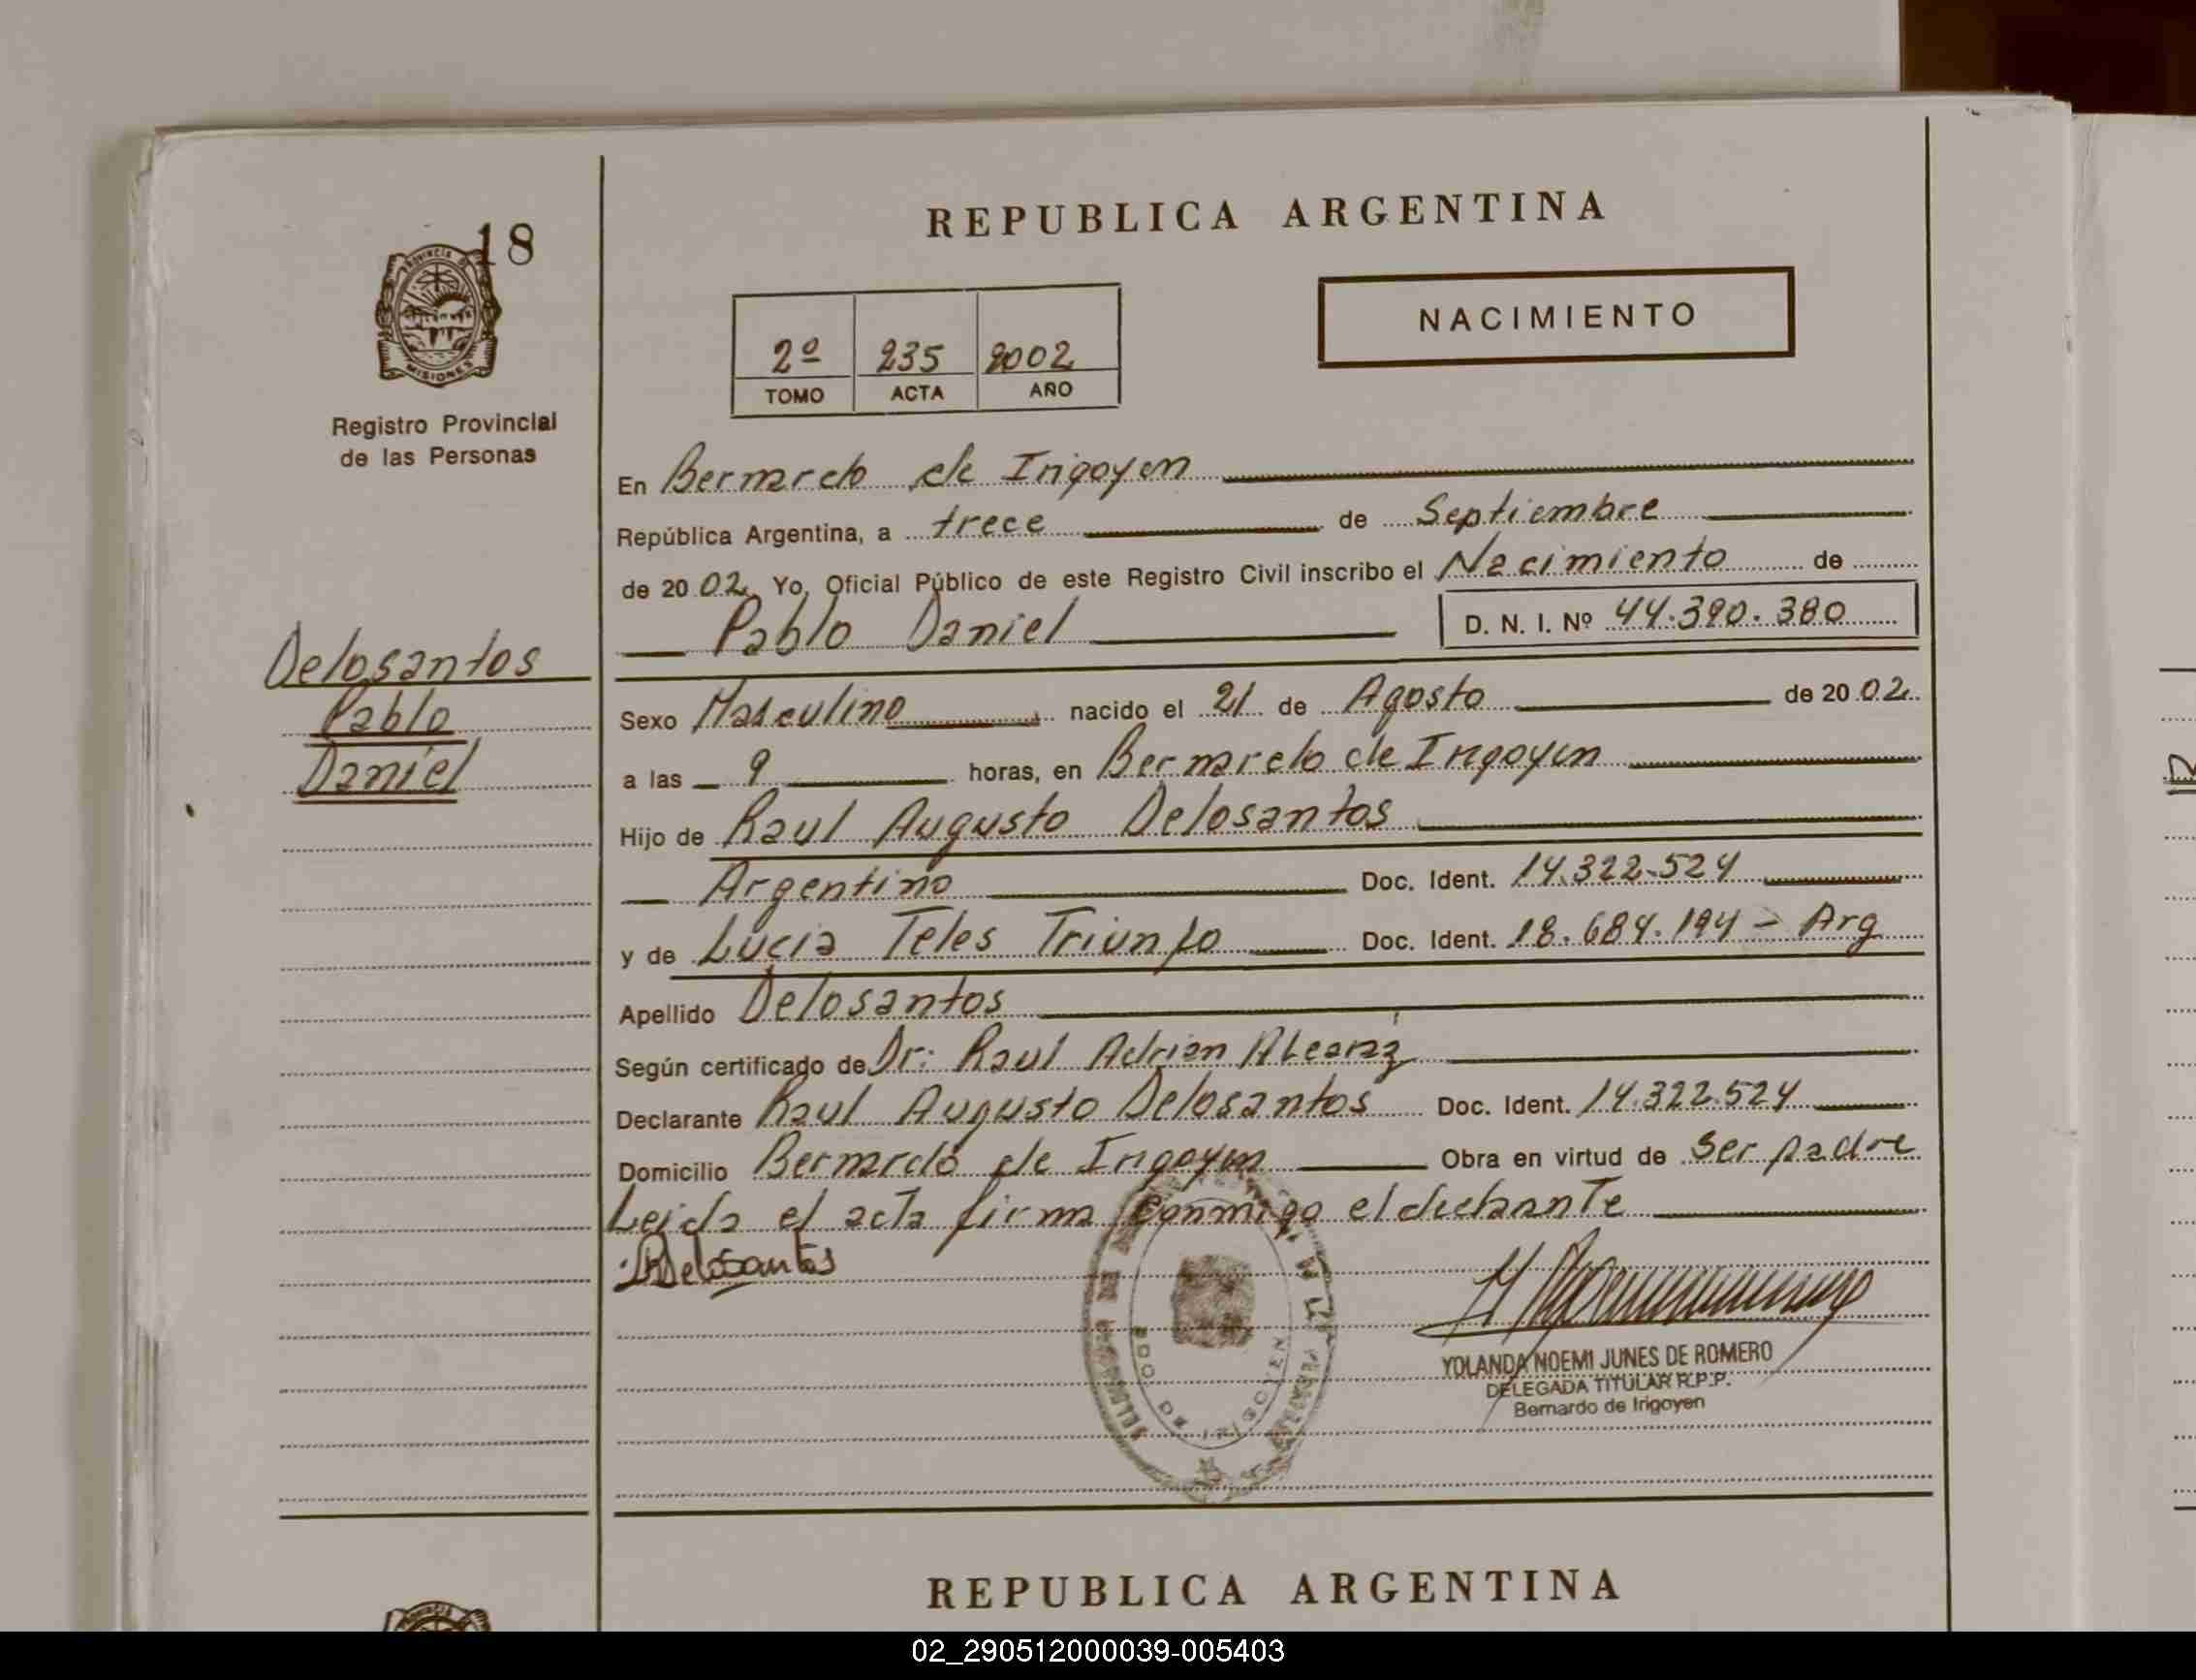 REPUBLICA ARGENTINA
18
PROVINCIA DE
MISIONES
Registro Provincial
de las Personas
NACIMIENTO
2º 235 2002
TOMO ACTA AÑO
En Bernardo de Irigoyen
República Argentina, a trece de Septiembre
de 2002 Yo, Oficial Público de este Registro Civil inscribo el Nacimiento de
Pablo Daniel D. N. I. Nº 44.390.380
Delosantos
Pablo
Daniel
Sexo Masculino nacido el 21 de Agosto de 2002
a las 9 horas, en Bernardo de Irigoyen
Hijo de Raul Augusto Delosantos
Argentino Doc. Ident. 14.322.524
y de Lucia Teles Triunfo Doc. Ident. 18.684.194 - Arg
Apellido Delosantos
Según certificado de Dr: Raul Adrian
Declarante Raul Augusto Delosantos Doc. Ident. 14.322.524
Domicilio Bernardo de Irigoyen Obra en virtud de Ser padre
Leida el acta firma conmigo el declarante
Delosantos
BDO DE IRIGOYEN
YOLANDA NOEMI JUNES DE ROMERO
DELEGADA TITULAR R.P.P.
Bernardo de Irigoyen
REPUBLICA ARGENTINA
02_290512000039-005403